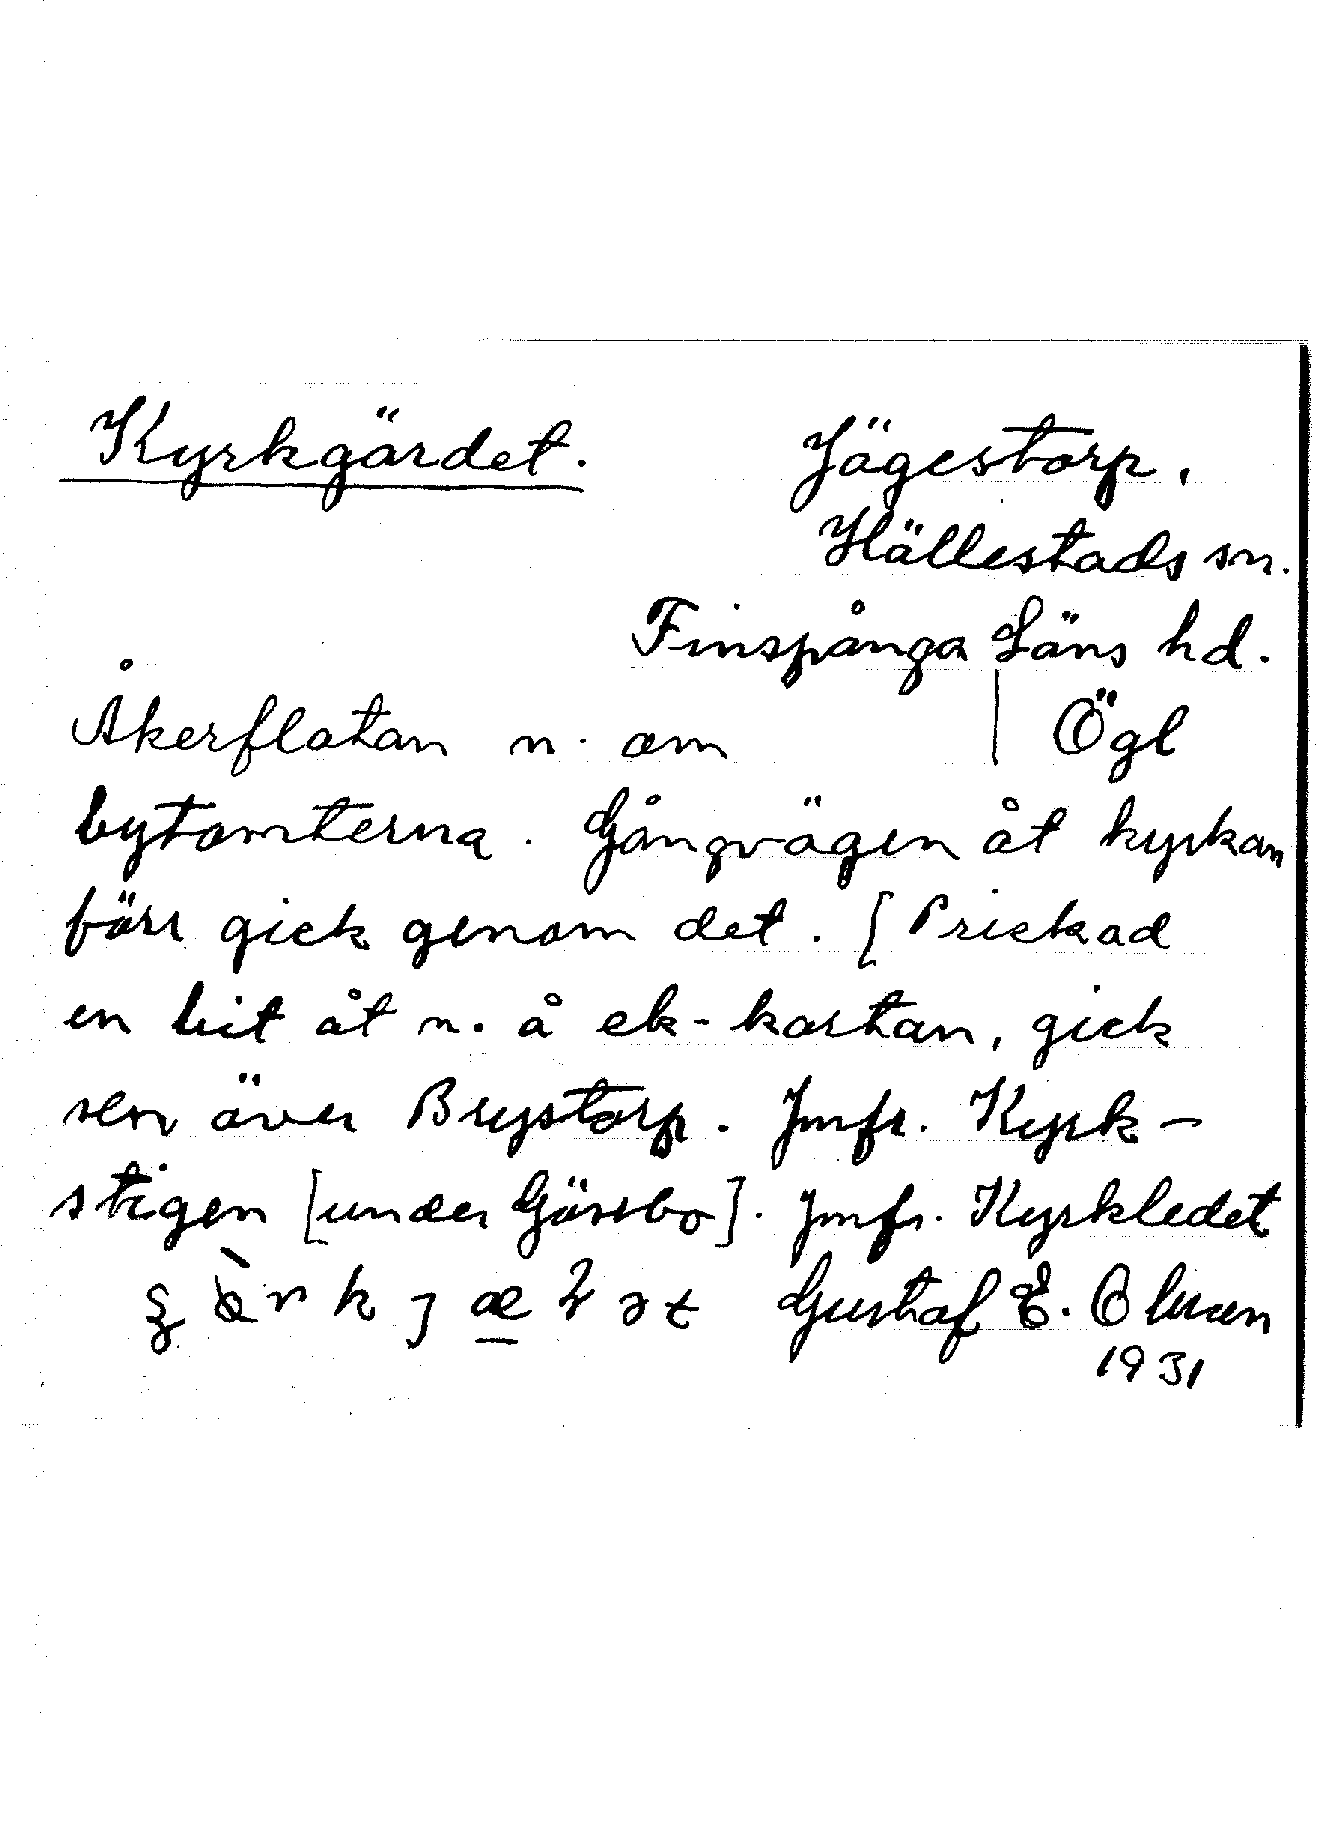 Kyrkgärdet. Jägestorp,
Hällestads sn.
Finspånga Läns hd.
Åkerflatan n. om Ögl
bytomterna. Gångvägen åt kyrkan
förr gick genom det. [Prickad
en bit åt n. å ek-kartan, gick
sen över Brystorp. Jmfr. Kyrk-
stigen [under Görsbo]. Jmfr. Kyrkledet
Gustaf E. Olsson
1931